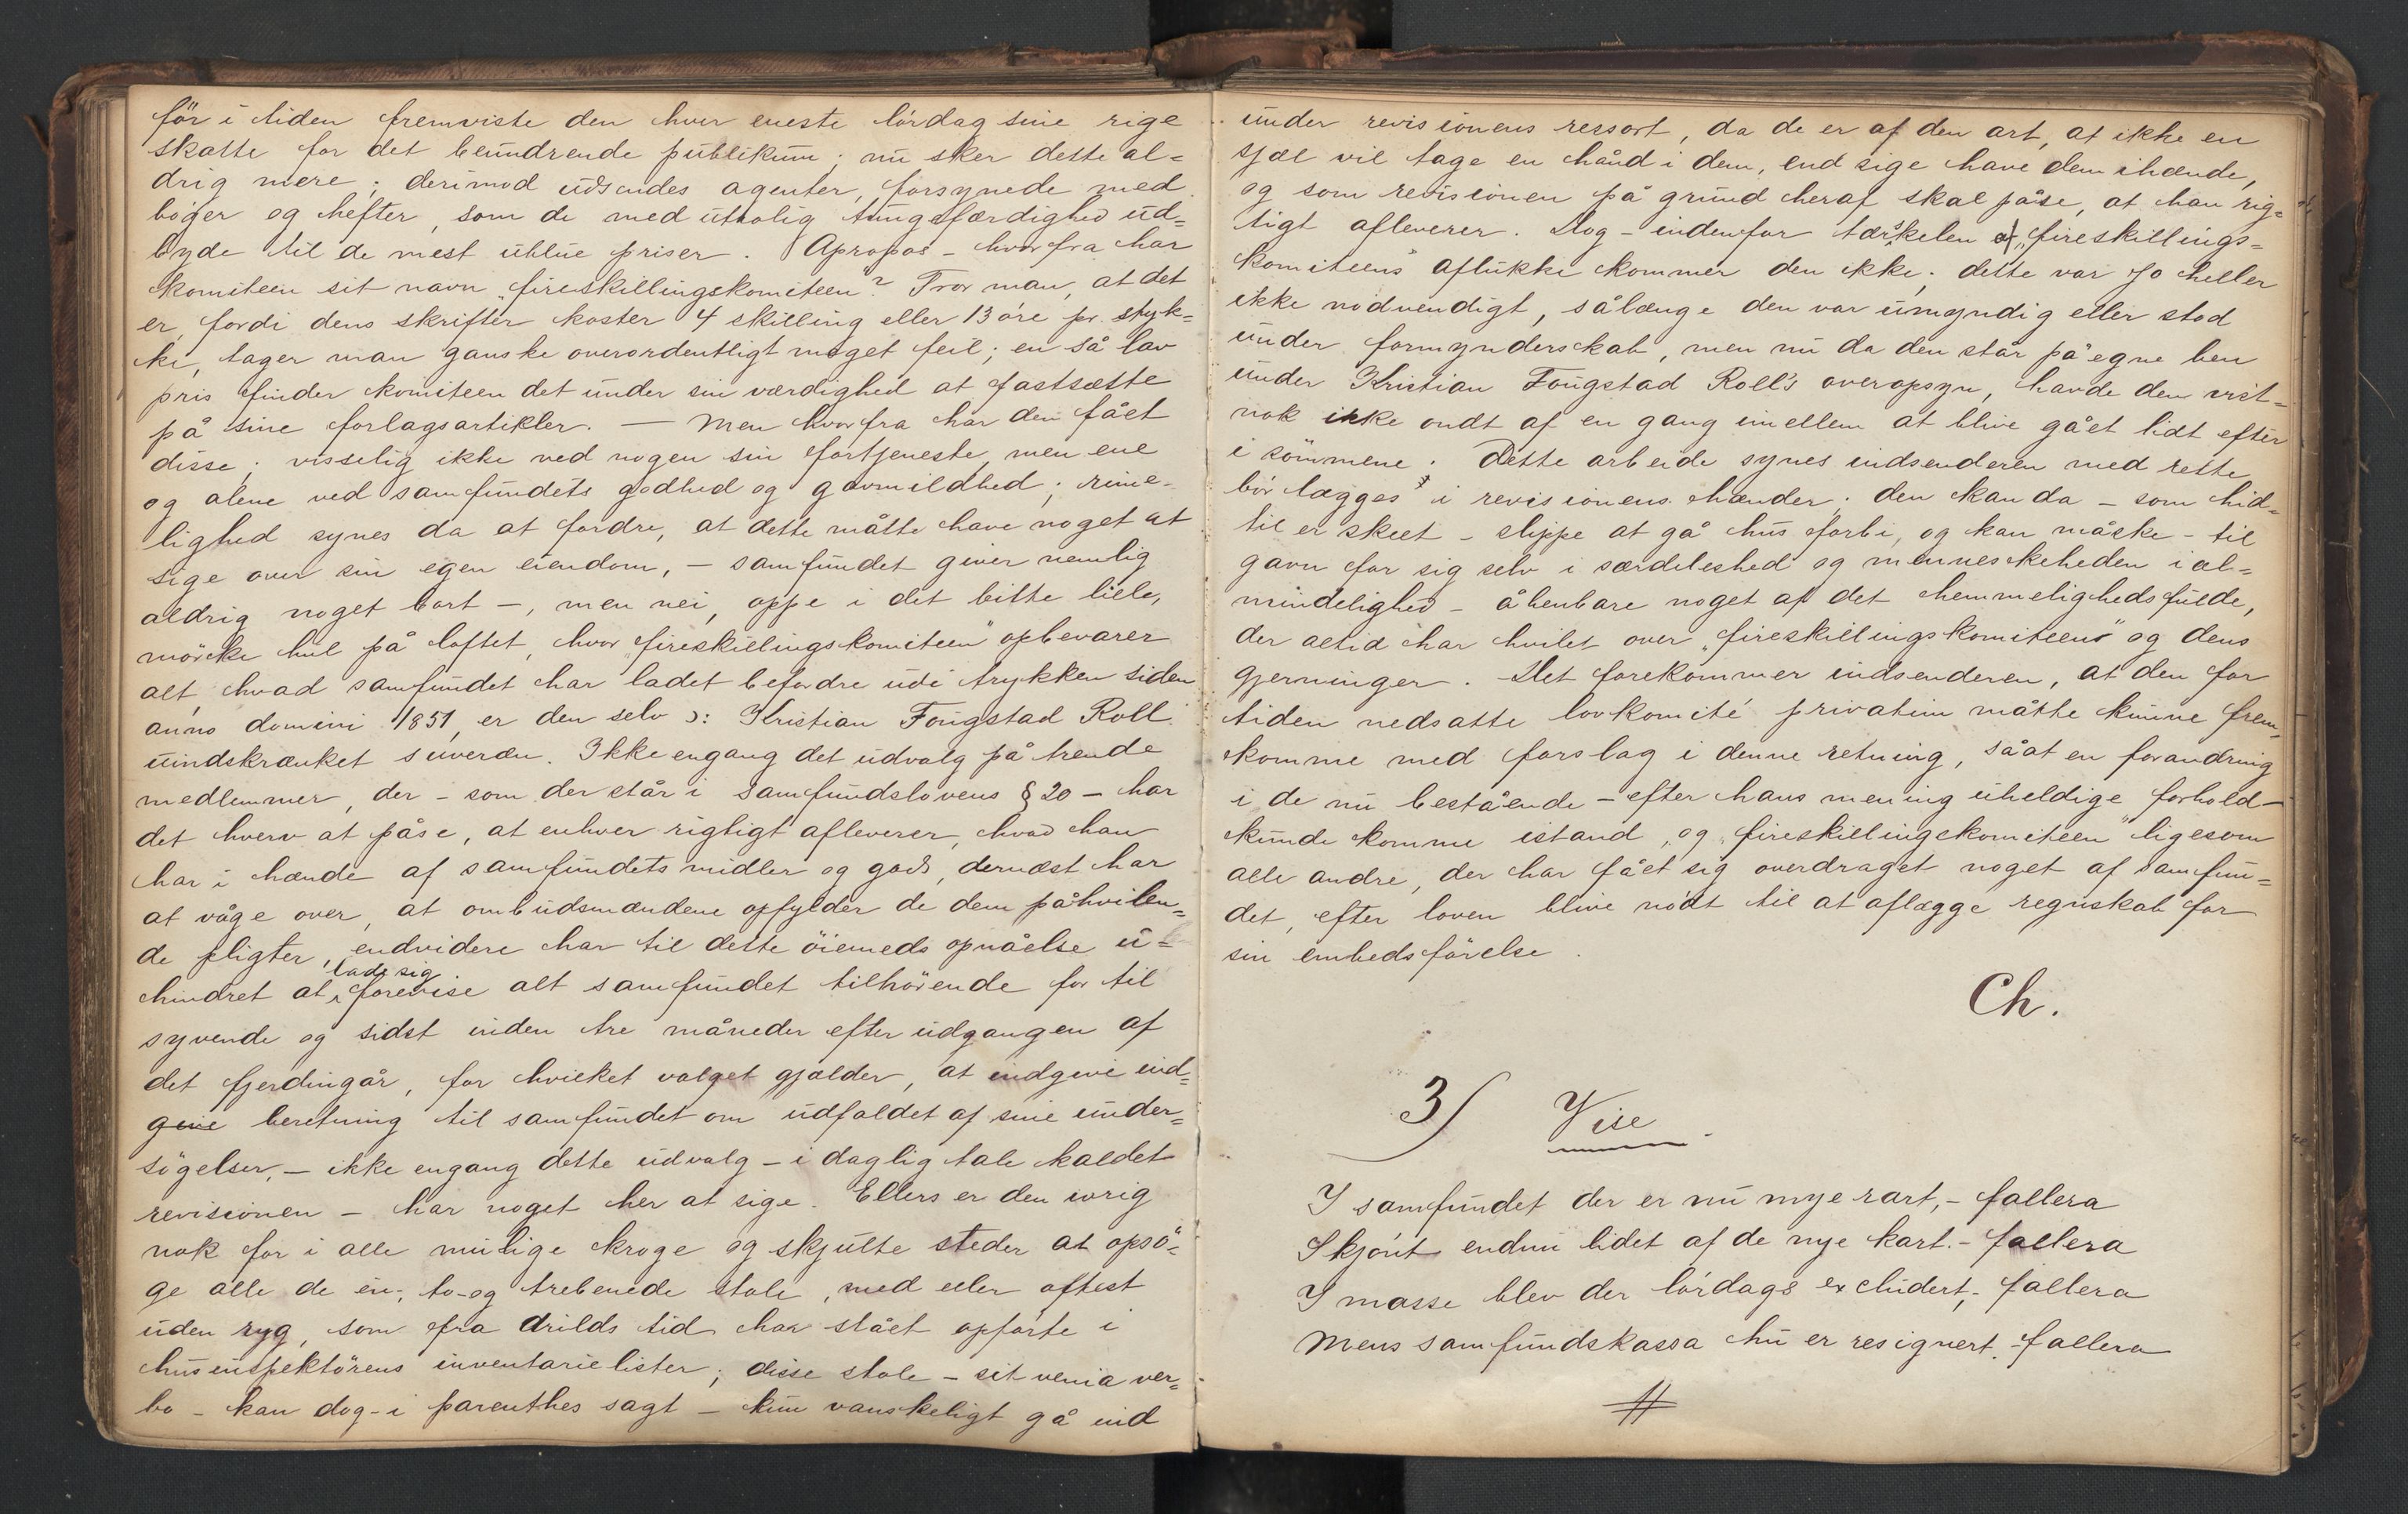 för i tiden fremviste den hver eneste lördag sine rige
skatte for det beundrende publikum; nu sker dette al=
drig mere; derimod udsendes agenter, forsynede med
böger og hefter, som de med utrolig tungefærdighed ud=
byde til de mest ublue priser. Apropos - hvorfra har
komiteen sit navn „fireskillingskomiteen"? Tror man, at det
er, fordi dens skrifter koster 4 skilling eller 13 öre pr. styk=
ke, tager man ganske overordentligt meget feil; en så lav
pris finder komiteen det under sin værdighed at fastsætte
på sine forlagsartikler. — Men hvorfra har den fået
disse; visselig ikke ved nogen sin fortjeneste, men ene
og alene ved samfundets godhed og gavmildhed; rime-
lighed synes da at fordre, at dette måtte have noget at
sige over sin egen eiendom, - samfundet giver nemlig
aldrig noget bort -, men nei, oppe i det bitte lille,
mörke hul på loftet, hvor „fireskillingskomiteen" opbevarer
alt, hvad samfundet har ladet befordre udi trykken siden
anno domini 1851, er den selv ɔ: Kristian Fougstad Roll
uindskrænket suveræn. Ikke engang det udvalg på trende
medlemmer, der - som der står i samfundslovens § 20 - har
det hverv at påse, at enhver rigtigt afleverer, hvad han
har i hænde af samfundets midler og gods, dernæst har
at våge over, at ombudsmændene opfylder de dem påhvilen=
de pligter, endvidere har til dette öiemeds opnåelse u=
hindret at lade sig forevise alt samfundet tilhörende for til
syvende og sidst inden tre måneder efter udgangen af
det fjerdingår, for hvilket valget gjælder, at indgive ind=
give beretning til samfundet om udfaldet af sine under=
sögelser, - ikke engang dette udvalg - i daglig tale kaldet
revisionen - har noget her at sige. Ellers er den ivrig
nok for i alle mulige kroge og skjulte steder at opsö=
ge alle de en-, to- og trebenede stole, med eller oftest
uden ryg, som fra Arilds tid har stået opförte i
husinspektörens inventarielister; disse stole - sit venia ver=
bo - kan dog - i parenthes sagt - kun vanskeligt gå ind
under revisionens ressort, da de er af den art, at ikke en
sjæl vil tage en hånd i dem, end sige have dem ihænde,
og som revisionen på grund heraf skal påse, at han rig=
tigt afleverer. Nog - indenfor tærskelen af „fireskillings=
komiteens" aflukke kommer den ikke; dette var jo heller
ikke nödvendigt, sålænge den var umyndig eller stod
under formynderskab, men nu da den står på egne ben
under Kristian Fougstad Roll's overopsyn, havde den vist=
nok ikke ondt af en gang imellem at blive gået lidt efter
i sömmene. Dette arbeide synes indsenderen med rette
bör lægges i revisionens hænder; den kan da - som hid=
til er skeet - slippe at gå hus forbi, og kan måske - til
gavn for sig selv i særdeleshed og menneskeheden i al=
mindelighed - åbenbare noget af det hemmelighedsfulde,
der altid har hvilet over „fireskillingskomiteens" og dens
gjerninger. Det forekommer indsenderen, at den for
tiden nedsatte lovkomité privatim måtte kunne frem=
komme med forslag i denne retning, såat en forandring
i de nu bestående - efter hans mening uheldige forhold -
kunde komme istand, og „fireskillingskomiteen" ligesom
alle andre, der har fået sig overdraget noget af samfun=
det, efter loven blive nödt til at aflægge regnskab for
sin embedsförelse.
Ch.
3) Vise.
I samfundet der er nu mye rart, - fallera
Skjönt endnu lidet af de nye kart. - fallera
I masse blev der lördags excludert, - fallera
Mens samfundskassa hu er resignert. - fallera